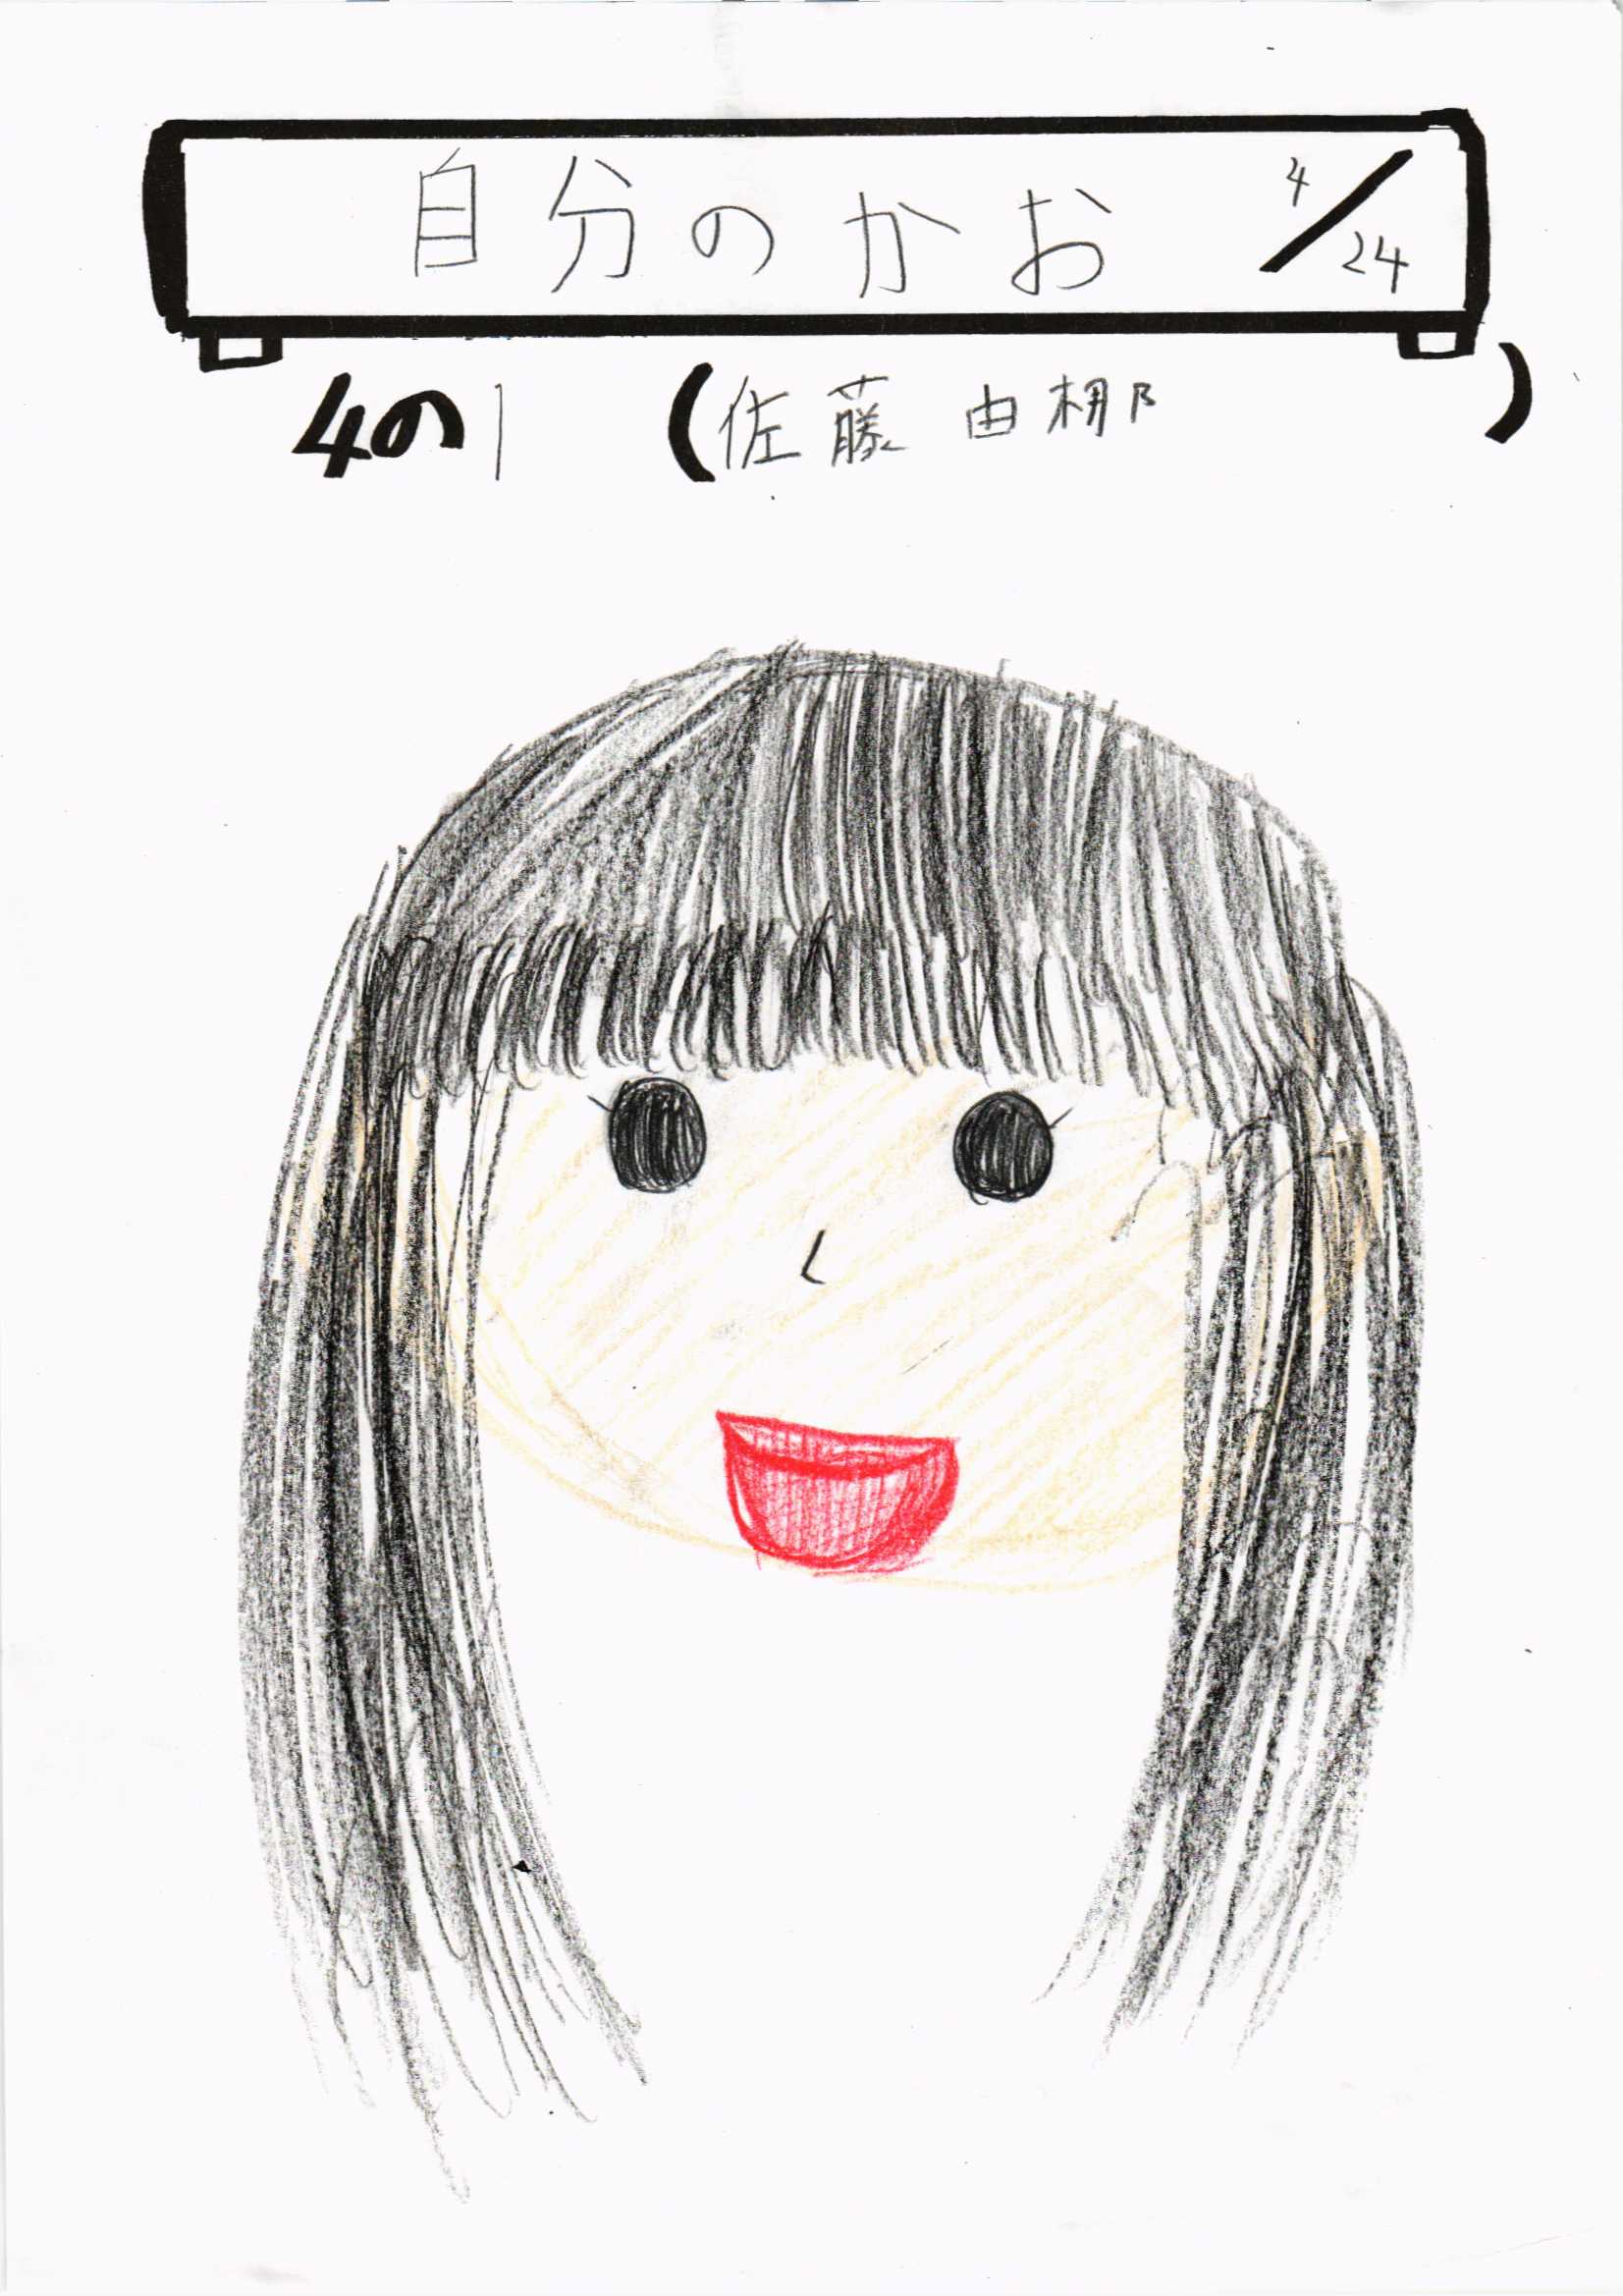 自分のかお 4/24
4の1 (佐藤 由梛)